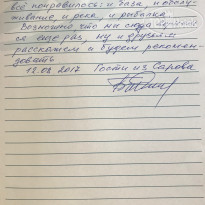 всё понравилось: и база, и обслу-
живание, и река, и рыбалка.
Возможно что мы сюда вернёмся
ся ещё раз, ну и друзьям
расскажем и будем рекомен-
довать
18.08.2017 Гости из Сарова